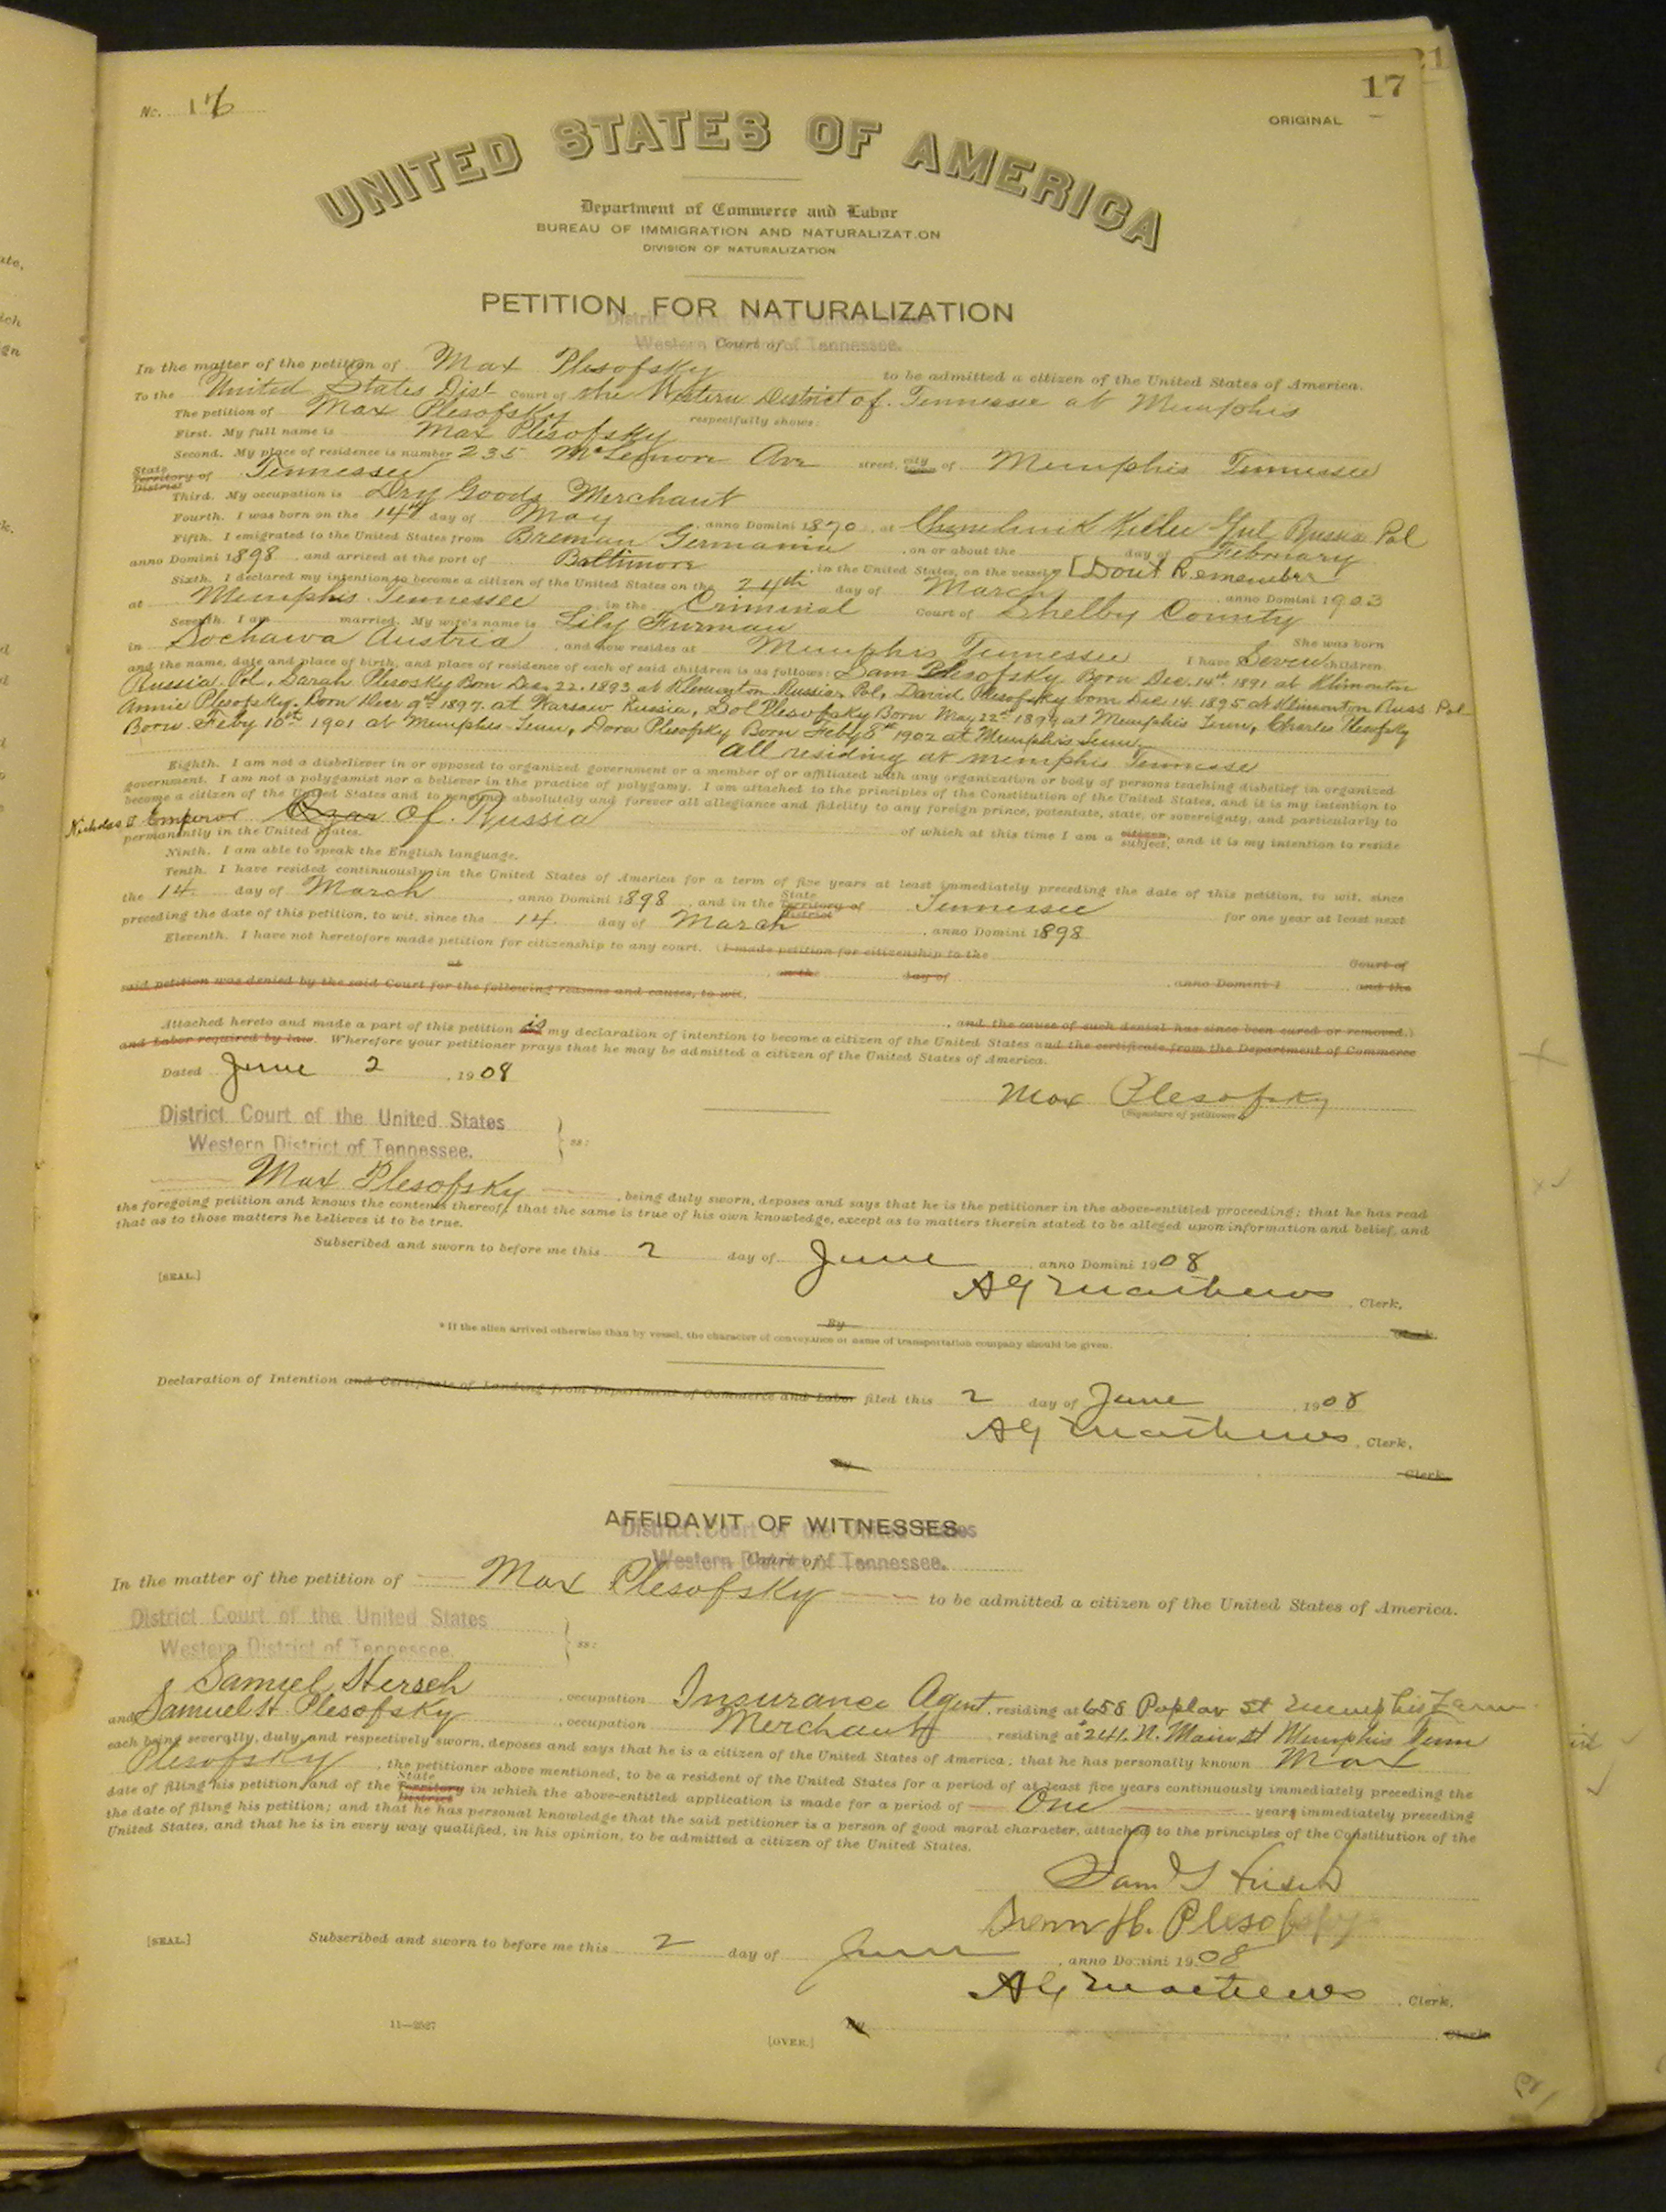 21
17
No. 16
ORIGINAL
UNITED STATES OF AMERICA
Department of Commerce and Labor
BUREAU OF IMMIGRATION AND NATURALIZATION
DIVISION OF NATURALIZATION
PETITION FOR NATURALIZATION
District Court of the United States
Western Court of of Tennessee.
In the matter of the petition of Max Plesofsky to be admitted a citizen of the United States of America.
To the United States Dist Court of the Western District of Tennessee at Memphis
The petition of Max Plesofsky respectfully shows:
First. My full name is Max Plesofsky
Second. My place of residence is number 235 McLemore Ave street, city of Memphis Tennessee
State Territory of District Tennessee
Third. My occupation is Dry Goods Merchant
Fourth. I was born on the 14th day of May, anno Domini 1870, at Russia Pol
Fifth. I emigrated to the United States from Breman Germania, on or about the day of February
anno Domini 1898, and arrived at the port of Baltimore, in the United States, on the vessel* [Dont Remember
Sixth. I declared my intention to become a citizen of the United States on the 24th day of March, anno Domini 1903
at Memphis Tennessee in the Criminal Court of Shelby County
Seventh. I am married. My wife's name is Lily Furman She was born
in Sochawa Austria, and now resides at Memphis Tennessee I have Seven children,
and the name, date and place of birth, and place of residence of each of said children is as follows: Sam Plesofsky Born Dec. 14th 1891 at Klimonton
Russia. Pol. Sarah Plesosky Born Dec. 22. 1893 at Klemonton Russia. Pol, David Plesofsky born Dec 14 1895 at Klimonton Russ Pol
Annie Plesofsky. Born Decr 9th 1897. at Warsaw Russia, Sol Plesofsky Born May 22d 1899 at Memphis Tenn, Charles Plesofsky
Born Feby 10th 1901 at Memphis Tenn, Dora Plesofsky Born Feby 8th 1902 at Memphis Tenn
All residing at Memphis Tennesse
Eighth. I am not a disbeliever in or opposed to organized government or a member of or affiliated with any organization or body of persons teaching disbelief in organized
government. I am not a polygamist nor a believer in the practice of polygamy. I am attached to the principles of the Constitution of the United States, and it is my intention to
become a citizen of the United States and to renounce absolutely and forever all allegiance and fidelity to any foreign prince, potentate, state, or sovereignty, and particularly to
Nicholas II Emperor Czar Of. Russia of which at this time I am a citizen, subject, and it is my intention to reside
permanently in the United States.
Ninth. I am able to speak the English language.
Tenth. I have resided continuously in the United States of America for a term of five years at least immediately preceding the date of this petition, to wit, since
the 14 day of March, anno Domini 1898, and in the State Territory of District Tennessee for one year at least next
preceding the date of this petition, to wit, since the 14 day of March, anno Domini 1898
Eleventh. I have not heretofore made petition for citizenship to any court. (I made petition for citizenship to the
Court of
at , on the day of , anno Domini 1 and the
said petition was denied by the said Court for the following reasons and causes, to wit,
, and the cause of such denial has since been cured or removed.)
Attached hereto and made a part of this petition is my declaration of intention to become a citizen of the United States and the certificate from the Department of Commerce
and Labor required by law. Wherefore your petitioner prays that he may be admitted a citizen of the United States of America.
Dated June 2, 1908
Max Plesofsky
(Signature of petitioner)
District Court of the United States
Western District of Tennessee. ss:
Max Plesofsky, being duly sworn, deposes and says that he is the petitioner in the above-entitled proceeding; that he has read
the foregoing petition and knows the contents thereof; that the same is true of his own knowledge, except as to matters therein stated to be alleged upon information and belief, and
that as to those matters he believes it to be true.
Subscribed and sworn to before me this 2 day of June, anno Domini 1908
[SEAL.]
A G Mathews, Clerk.
By Clerk.
*If the alien arrived otherwise than by vessel, the character of conveyance or name of transportation company should be given.
Declaration of Intention and Certificate of Landing from Department of Commerce and Labor filed this 2 day of June, 1908
A G Mathews, Clerk.
By Clerk.
AFFIDAVIT OF WITNESSES
District Court of the United States
Western District Court of of Tennessee.
In the matter of the petition of Max Plesofsky to be admitted a citizen of the United States of America.
District Court of the United States
Western District of Tennessee. ss:
Samuel Hersch, occupation Insurance Agent, residing at 658 Poplar St Memphis Tenn
and Samuel H. Plesofsky, occupation Merchant, residing at 241 N. Main St Memphis Tenn
each being severally, duly, and respectively sworn, deposes and says that he is a citizen of the United States of America; that he has personally known Max
Plesofsky, the petitioner above mentioned, to be a resident of the United States for a period of at least five years continuously immediately preceding the
date of filing his petition, and of the State Territory District in which the above-entitled application is made for a period of One years immediately preceding
the date of filing his petition; and that he has personal knowledge that the said petitioner is a person of good moral character, attached to the principles of the Constitution of the
United States, and that he is in every way qualified, in his opinion, to be admitted a citizen of the United States.
Sam H. Plesofsky
[SEAL.]
Subscribed and sworn to before me this 2 day of June, anno Domini 1908
A G Mathews, Clerk.
By Clerk.
11—2527
[OVER.]